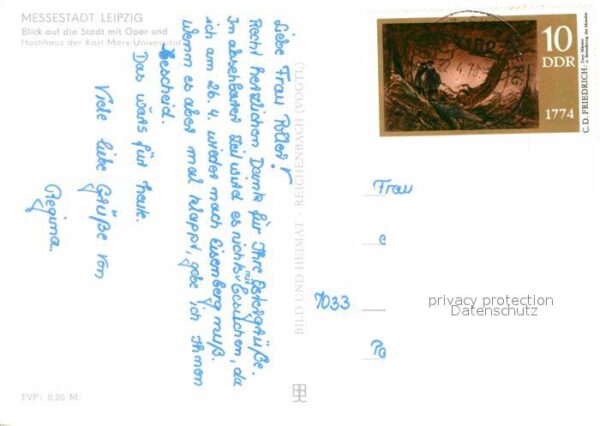 MESSESTADT LEIPZIG
Blick auf die Stadt mit Oper und
Hochhaus der Karl-Marx-Universität
Liebe Frau Poller!
Recht herzlichen Dank für Ihre Ostergrüße.
In absehbarer Zeit wird es nichts mit Besuchen, da
ich am 26.4. wieder nach Eisenberg muß.
Wenn es aber mal klappt, gebe ich Ihnen
Bescheid.
Das wärs für heute.
Viele liebe Grüße von
Regina.
EVP: 0,20 M
BILD UND HEIMAT · REICHENBACH (VOGTL)
10
DDR
1774
C. D. FRIEDRICH:
Zwei Männer
in Betrachtung des Mondes
22.4.75
Frau
7033
privacy protection
Datenschutz